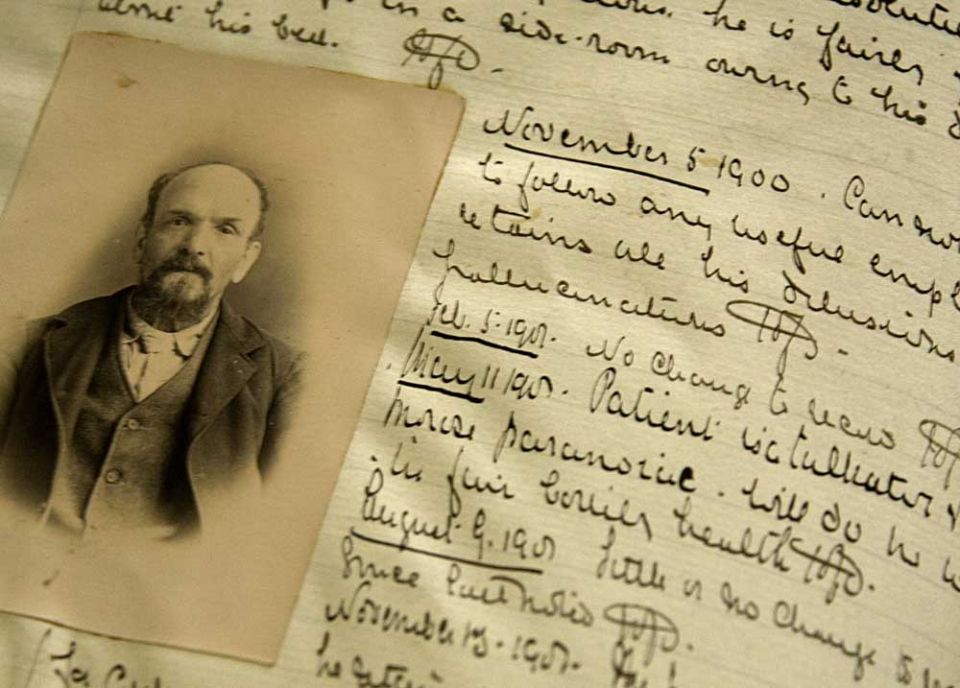 he is fairly
in a side-room owing to his
about his bed.
November 5 1900. Cannot
to follow any useful empl
retains all his delusions
hallucinations
Feb. 5. 1901. No change to record
May 11 1901. Patient is talkative
morose paranoiac. Will do no w
in fair bodily health
August 9. 1901 little or no change
Since last notes
November 1901.
he